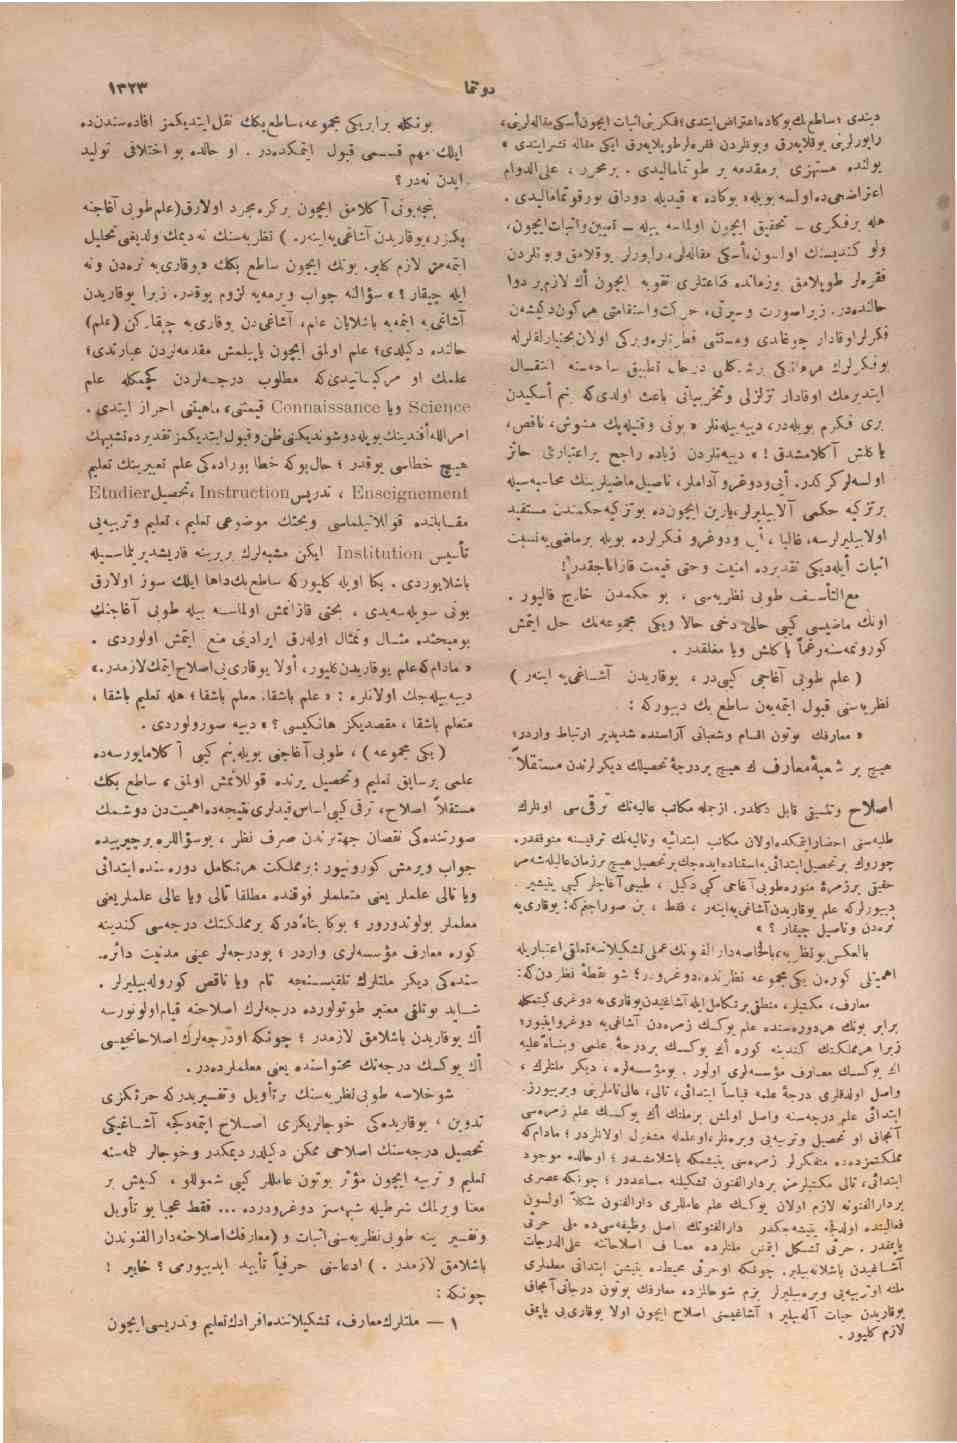 دوتما ١٣٢٣
دیتدی ؛ ساطع بك بوكاده اعتراض ایتدی ؛ فكرینی اثبات ایچون أسكی مقاله لرینی،
راپورلرینی یوقلایه رق وبونلردن فقره لر طوپلایه رق ایكی مقاله نشر ایتدی »
یولنده مستهزی بر مقدمه یر طوتمامالیدی . بر محرر ، علی الدوام
اعتراضجی ده اولسه بویله « بوكاده » قیدیله دوداق بورقوتمامالیدی .
هله بر فكری ـ تحقیق ایچون اولماسه بیله ـ تمیین واثبات ایچون،
ولو كندیسنك اولسون، أسكی مقاله لری، راپورلر یوقلامق وبونلردن
فقره لر طوپلامق وزمانده قناعتلری تقویه ایچون أك لازم بر دوا
حالنده در. زیرا صورت وسیرتی، حركت واستقامتی هركون دكیشن
فكرلر اوقدار چوغالدی
بوفكرلرك هرهانكی بر شكلی درحال تطبیق ساحه سنه انتقال
ایتدیرمك اوقادار تزلزلی وتخریباتی باعث اولدی كه بنم أسكیدن
بری فكرم بویله در، دییه بیله نلر « بونی وقتیله پك مشوش، ناقص،
یاكلش آكلامشدق ! » دییه نلردن زیاده راجح بر اعتباره حائز
اولسه لر كركدر. آیی ودوغرو آداملر، ناصیل ماضیلرینك محاسبه سیله
بر تزكیه حكمی آلابیلیرلر، یازین ایچون ده بو تزكیه حكمندن مستفید
اولابیلیرلرسه، غالبا ، آیی ودوغرو فكرلرده بویله بر ماضی یه نسبت
اثبات أیله دیكی تقدیرده امنیت وحتی قیمت قازاناجقدر !
مع التأسف طوبی نظریه سی ، بو حكمدن خارج قالیور .
اونك ماضیسی كبی حالی دخی حالا ویكی مجموعه نك حل ایتمش
كورونمه سنه رغماً یاكلش ویا مغلقدر .
( علم طوبی آغاجی كبی در ، یوقاریدن آشاغی یه اینه ر )
نظریه سنی قبول ایتمه ین ساطع بك دییوركه :
« معارفك بوتون اقسام وشعباتی آراسنده شدیدبر ارتباط واردر؛
هیچ بر شعبۀ معارف ك هیچ بر درجۀ تحصیلك دیكرلرندن مستقلاً
اصلاح وتنسیقی قابل دكلدر. ازجمله مكاتب عالیه نك ترقی سی اونلرك
طلبه سنی احضار ایتمكده اولان مكاتب ابتدائیه وتالیه نك ترقیسنه متوقفدر.
چوروك بر تحصیل ابتدائی یه استناد ایده جك بر تحصیل هیچ بر زمان عالیله شه مز
حقیقی بر زمرۀ منوره طوبی آغاجی كبی دكیل ، طبیعی آغاجلر كبی یتیشیر .
دییورلركه علم یوقاریدن آشاغی یه اینه ر ، فقط ، بن صوراجغم كه: یوقاری یه
نره دن وناصیل چیقار ؟ »
بالعكس بو نظریه، بالخاصه دارالفنونك عملی تشكیلاتنه تعلقی اعتباریله
اهمیتلی كورون یكی مجموعه نظرنده، دوغرودر؛ شو نقطۀ نظردن كه:
معارف، مكتبلر، منطقی بر تكامل ایله آشاغیدن یوقاری یه دوغری كیتمكله
برابر بونك هر دوره سنده علم یوكسك زمره دن آشاغی یه دوغرو اینیور؛
زیرا هر مملكتك كندینه كوره أك یوكسك بر درجۀ علمی وبناءً علیه
اك یوكسك معارف مؤسسه لری اولور . بو مؤسسه لره ، دیكر ملتلرك ،
واصل اولدقلری درجۀ علمه قیاساً ابتدائی، تالی، عالی ناملرینی ویرییورز.
ابتدائی علم درجه سنه واصل اولمش بر ملتك أك یوكسك علم زمره سی
آنجاق او تحصیل وتربیه یی ویره نلر، او علمله مشغول اولانلردر ؛ مادام كه
مملكتمزده متفكرلر زمره سی یتیشمكه باشلامشدر ؛ او حالده موجود
ابتدائی، تالی مكتبلرمز بر دارالفنون تشكیلنه مساعددر ؛ چونكه عصری
بر دارالفنونه لازم اولان یوكسك علم عاملری دارالفنون شكلاً اولسون
فعالیتده اولدقجه یتیشه جكدر دارالفنونك اصل وظیفه سی ده ملی حرثی
یاپمقدر. حرثی تشكل ایتمش ملتلرده معارف اصلاحاتنه علی الدرجات
آشاغیدن باشلانه بیلیر. چونكه او حرثی محیطده یتیشن ابتدائی معلملری
ملته او تربیه یی ویره بیلیرلر بزم شو حالمزده معارفك بوتون درجاتی آنجاق
یوقاریدن حیات آله بیلیر ؛ آشاغیسنی اصلاح ایچون اولا یوقاری یی یاپمق
لازم كلیور .
بونكله برابر یكی مجموعه، ساطع بكك نقل ایتدیكمز افاده سندن ده
ایلك مهم قسمی قبول ایتمكده در . او حالده بو اختلافی تولید
ایدن نه در ؟
بنجه بونی آكلامق ایچون بر كره مجرد اولارق (علم طوبی آغاجنه
بكزر، یوقاریدن آشاغی یه اینه ر. ) نظریه سنك نه دیمك اولدیغنی تحلیل
ایتمه من لازم كلیر. بونك ایچون ساطع بكك « یوقاری یه نره دن ونه
ایله چیقار ؟ » سؤالنه جواب ویرمه یه لزوم یوقدر. زیرا یوقاریدن
آشاغی یه اینمه یه باشلایان علم، آشاغیدن یوقاری یه چیقاركن (علم)
حالنده دكیلدی؛ علم اولمق ایچون یاپیلمش مقدمه لردن عبارتدی؛
علمك او مركباتیدی كه مطلوب درجه لردن كچمكله علم
Science ویا Connaissance قیمتنی، ماهیتنی احراز ایتدی .
امر الله أفندینك بویله دوشوندیكنی ظن وقبول ایتدیكمز تقدیرده تشبیهك
هیچ خطاسی یوقدر ؛ حال بوكه خطا بوراده كی علم تعبیرینك تعلیم
Enseignement ، تدریس Instruction ، تحصیل Etudier
مقابلنده قوللانیلماسی وبحثك موضوعی تعلیم ، تعلیم وتربیه یی
تأسیس Institution ایكن مشبه لرك بربرینه قاریشدیریلماسیله
باشلایوردی . بكا اویله كلیوركه ساطع بك داها ایلك سوز اولارق
بونی سویله سه یدی ، بحثی قازانمش اولماسه بیله طوبی آغاجنك
بو مبحثده مثال وتمثال اوله رق ایرادینی منع ایتمش اولوردی .
« مادام كه علم یوقاریدن كلیور، أولا یوقاری یی اصلاح ایتمك لازمدر. »
دییه بیله جك اولانلره : « علم باشقا. معلم باشقا ؛ هله تعلیم باشقا ،
متعلم باشقا ، مقصدیكز هانكیسی ؟ » دییه صورولوردی .
( یكی مجموعه ) ، طوبی آغاجنی بویله بنم كبی آكلامایورسه ده
علمی بر سایق تعلیم وتحصیل یرنده قوللانمش اولمق، ساطع بكك
مستقلاً اصلاح، ترقی كبی اساس قیدلری نتیجه ده اهمیت دن دوشمك
صورتنده كی نقصان جهتلرندن صرف نظر ، بو سؤاللره بر چیرپیده
جواب ویرمش كورونیور : بر مملكت هر تكامل دوره سنده ابتدائی
ویا تالی علملر یعنی متعلملر فوقنده مطلقا تالی ویا عالی علملر یعنی
معلملر بولوندورور ؛ بوكا بناءً دركه بر مملكتك درجه سی كندینه
كوره معارف مؤسسه لری واردر ؛ بو درجه لر عینی مدنیت دائره
سنده كی دیكر ملتلرك تلقیسنجه تام ویا ناقص كوروله بیلیرلر .
شاید بو تلقی معتبر طوتولورده درجه لرك اصلاحنه قیام اولونورسه
أك یوقاریدن باشلامق لازمدر ؛ چونكه او درجه لرك اصلاحاتجیسی
أك یوكسك درجه نك محتواسنده یعنی معلملرده در .
شو خلاصه طوبی نظریه سنك بر تأویل وتفسیریدركه حرثكزی
تدوین ، یوقاریده كی خوجالریكزی اصلاح ایتمه دكجه آشاغیكی
تحصیل درجه سنك اصلاحی ممكن دكیلدر دیمكدر وخوجالر طلبه سنه
تعلیم و تربیه ایچون مؤثر بوتون عامللر كبی شموللو ، كنیش بر
معنا ویرلمك شرطیله شبهه سز دوغرودرده ... فقط عجبا بو تأویل
وتفسیر ینه طوبی نظریه سنی اثبات و (معارفك اصلاحنه دارالفنوندن
باشلامق لازمدر . ) ادعاسنی حرفیاً تأیید ایدییورمی ؟ خایر !
چونكه :
١ — ملتلرك معارف، تشكیلاتنده افرادك تعلیم وتدریسی ایچون